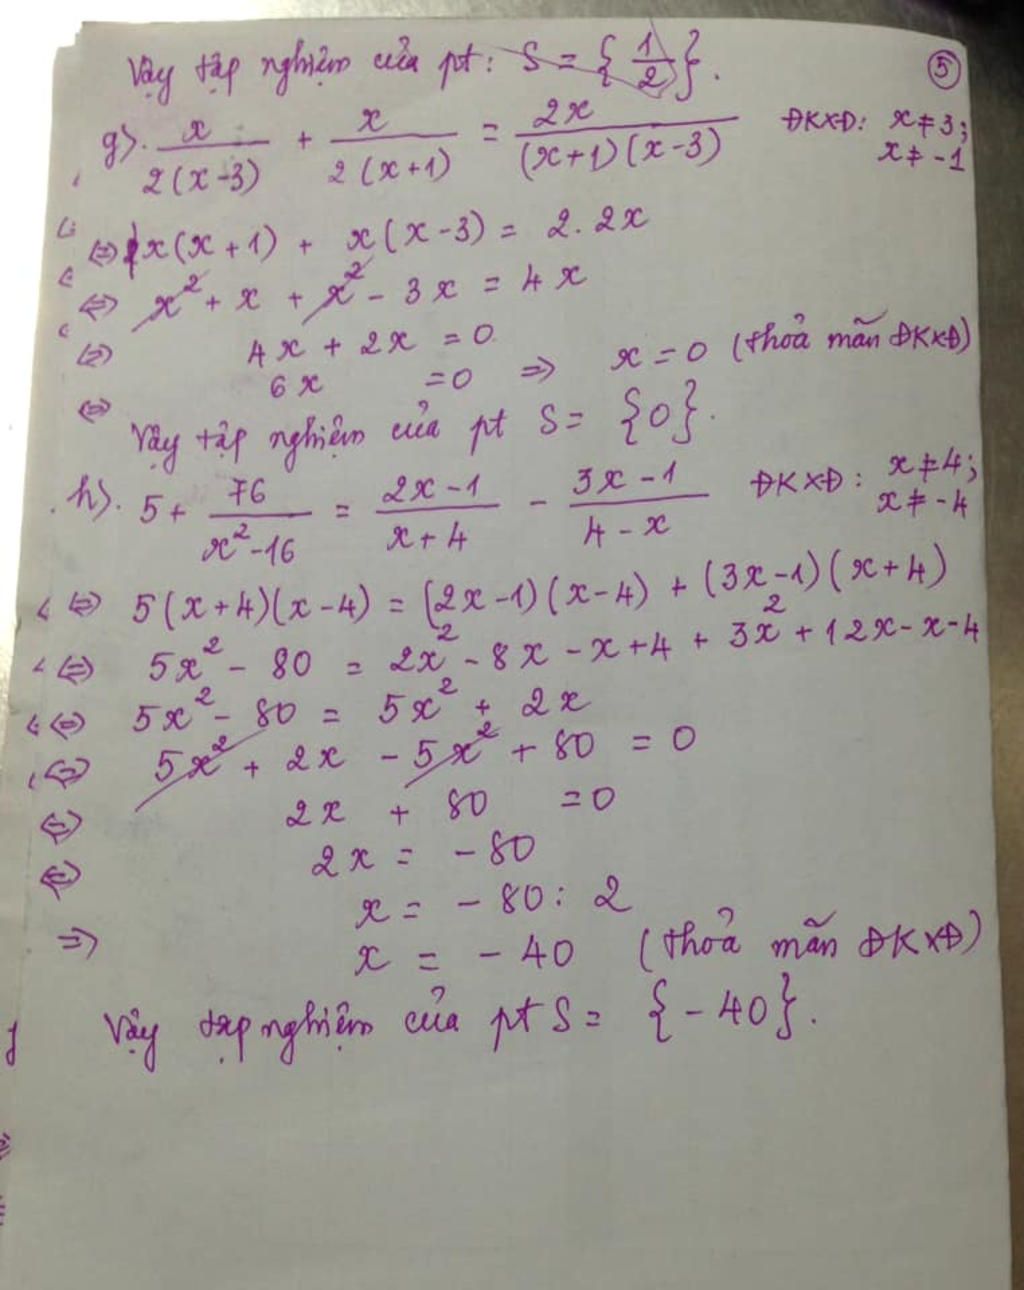 Vậy tập nghiệm của pt: S = {1/2}.
⑤
g). x/2(x-3) + x/2(x+1) = 2x/(x+1)(x-3) ĐKXĐ: x≠3;
x≠-1
⇔ x(x+1) + x(x-3) = 2.2x
⇔ x² + x + x² - 3x = 4x
⇔ 4x + 2x = 0
⇔ 6x = 0 ⇒ x = 0 (thoả mãn ĐKXĐ)
Vậy tập nghiệm của pt S = {0}.
h). 5 + 76/x²-16 = 2x-1/x+4 - 3x-1/4-x ĐKXĐ: x≠4;
x≠-4
⇔ 5(x+4)(x-4) = (2x-1)(x-4) + (3x-1)(x+4)
⇔ 5x² - 80 = 2x² - 8x - x + 4 + 3x² + 12x - x - 4
⇔ 5x² - 80 = 5x² + 2x
⇔ 5x² + 2x - 5x² + 80 = 0
⇔ 2x + 80 = 0
⇔ 2x = -80
x = -80 : 2
⇒ x = -40 (thoả mãn ĐKXĐ)
Vậy tập nghiệm của pt S = {-40}.